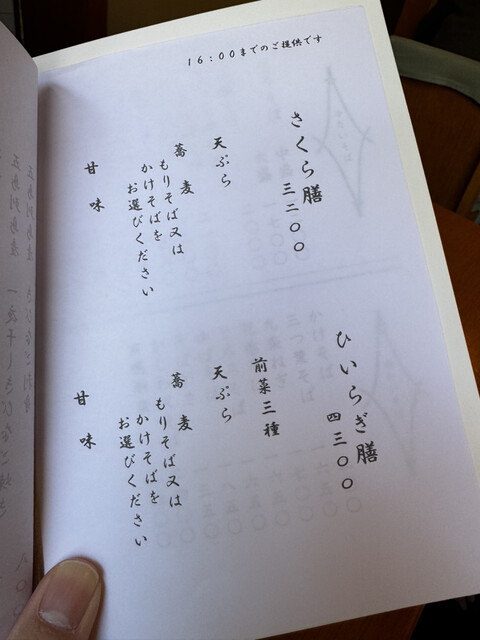 16:00までのご提供です
さくら膳
三二〇〇
天ぷら
蕎麦
もりそば又は
かけそばを
お選びください
甘味
ひいらぎ膳
四三〇〇
前菜三種
天ぷら
蕎麦
もりそば又は
かけそばを
お選びください
甘味